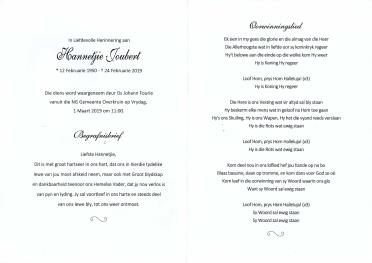 In Liefdevolle Herinnering aan
Hannetjie Joubert
* 12 Februarie 1950 - † 24 Februarie 2019
Die diens word waargeneem deur Ds Johann Fourie
vanuit die NG Gemeente Overkruin op Vrydag,
1 Maart 2019 om 11:00.
Begrafnisbrief
Liefste Hannetjie,
Dit is met groot hartseer in ons hart, dat ons in hierdie tydelike
lewe van jou moet afskeid neem, maar ook met Groot blydskap
en dankbaarheid teenoor ons Hemelse Vader, dat jy nou verlos is
van pyn en lyding. Jy sal voortleef in ons harte en steeds deel
van ons lewe bly, tot ons weer ontmoet.
Oorwinningslied
Ek sien in my gees die glorie en die almag van die Heer
Die Allerhoogste wat in liefde oor sy koninkryk regeer
Hy't belowe aan die einde op die wolke kom Hy weer
Hy is Koning Hy regeer
Loof Hom, prys Hom Halleluja! (x3)
Hy is Koning Hy regeer
Die Here is ons Vesting wat vir altyd sal bly staan
Hy beskerm elke mens wat in geloof na Hom toe gaan
Hy's ons Skuiling, Hy is ons Wapen, Hy hot die vyand reeds verslaan
Hy is die Rots wat ewig staan
Loof Hom, prys Hom Halleluja! (x3)
Hy is die Rots wat ewig staan
Kom deel nou in ons loflied hef jou hande op na bo
Blaas basuine, slaan op tromme, en kom dans voor God se oë
Kom leef in die oorwinning van sy Woord waarin ons glo
Want sy Woord sal ewig staan
Loof Hom, prys Hom Halleluja! (x3)
Sy Woord sal ewig staan
Sy Woord sal ewig staan